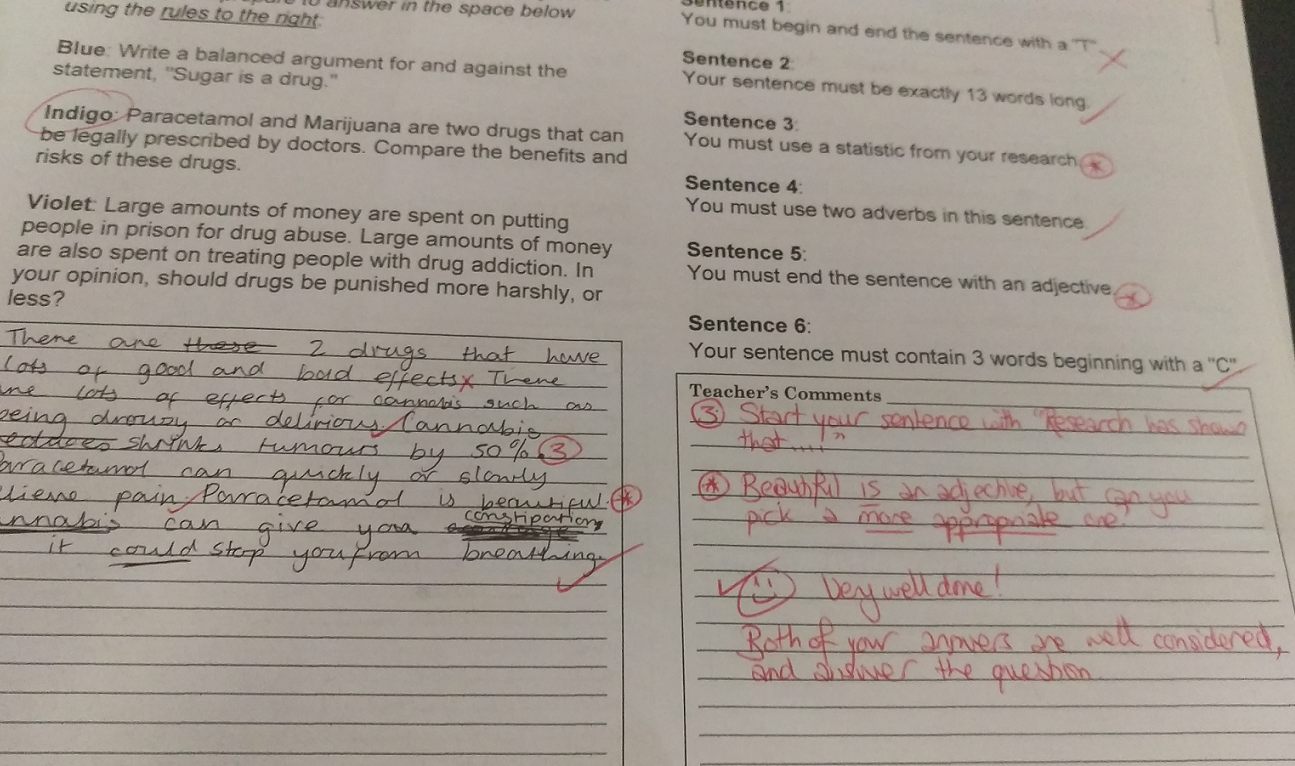 to answer in the space below
using the rules to the right.
Blue: Write a balanced argument for and against the
statement, "Sugar is a drug."
Indigo: Paracetamol and Marijuana are two drugs that can
be legally prescribed by doctors. Compare the benefits and
risks of these drugs.
Violet: Large amounts of money are spent on putting
people in prison for drug abuse. Large amounts of money
are also spent on treating people with drug addiction. In
your opinion, should drugs be punished more harshly, or
less?
There are these 2 drugs that have
lots of good and bad effects x There
lots of effects for cannabis such as
being drowzy or delirious. Cannabis
shrinks tumours by 50%. 3
Paracetamol can quickly or slowly
lieve pain, Parracetamol is beautiful. *
nnabis can give you constipation,
it could stop you from breathing.
Sentence 1:
You must begin and end the sentence with a "T"
Sentence 2:
Your sentence must be exactly 13 words long.
Sentence 3:
You must use a statistic from your research *
Sentence 4:
You must use two adverbs in this sentence.
Sentence 5:
You must end the sentence with an adjective *
Sentence 6:
Your sentence must contain 3 words beginning with a "C"
Teacher's Comments
3 Start your sentence with "Research has shown
that ...."
* Beautiful is an adjective, but can you
pick a more appropriate one?
Very well done!
Both of your answers are well considered,
and answer the question